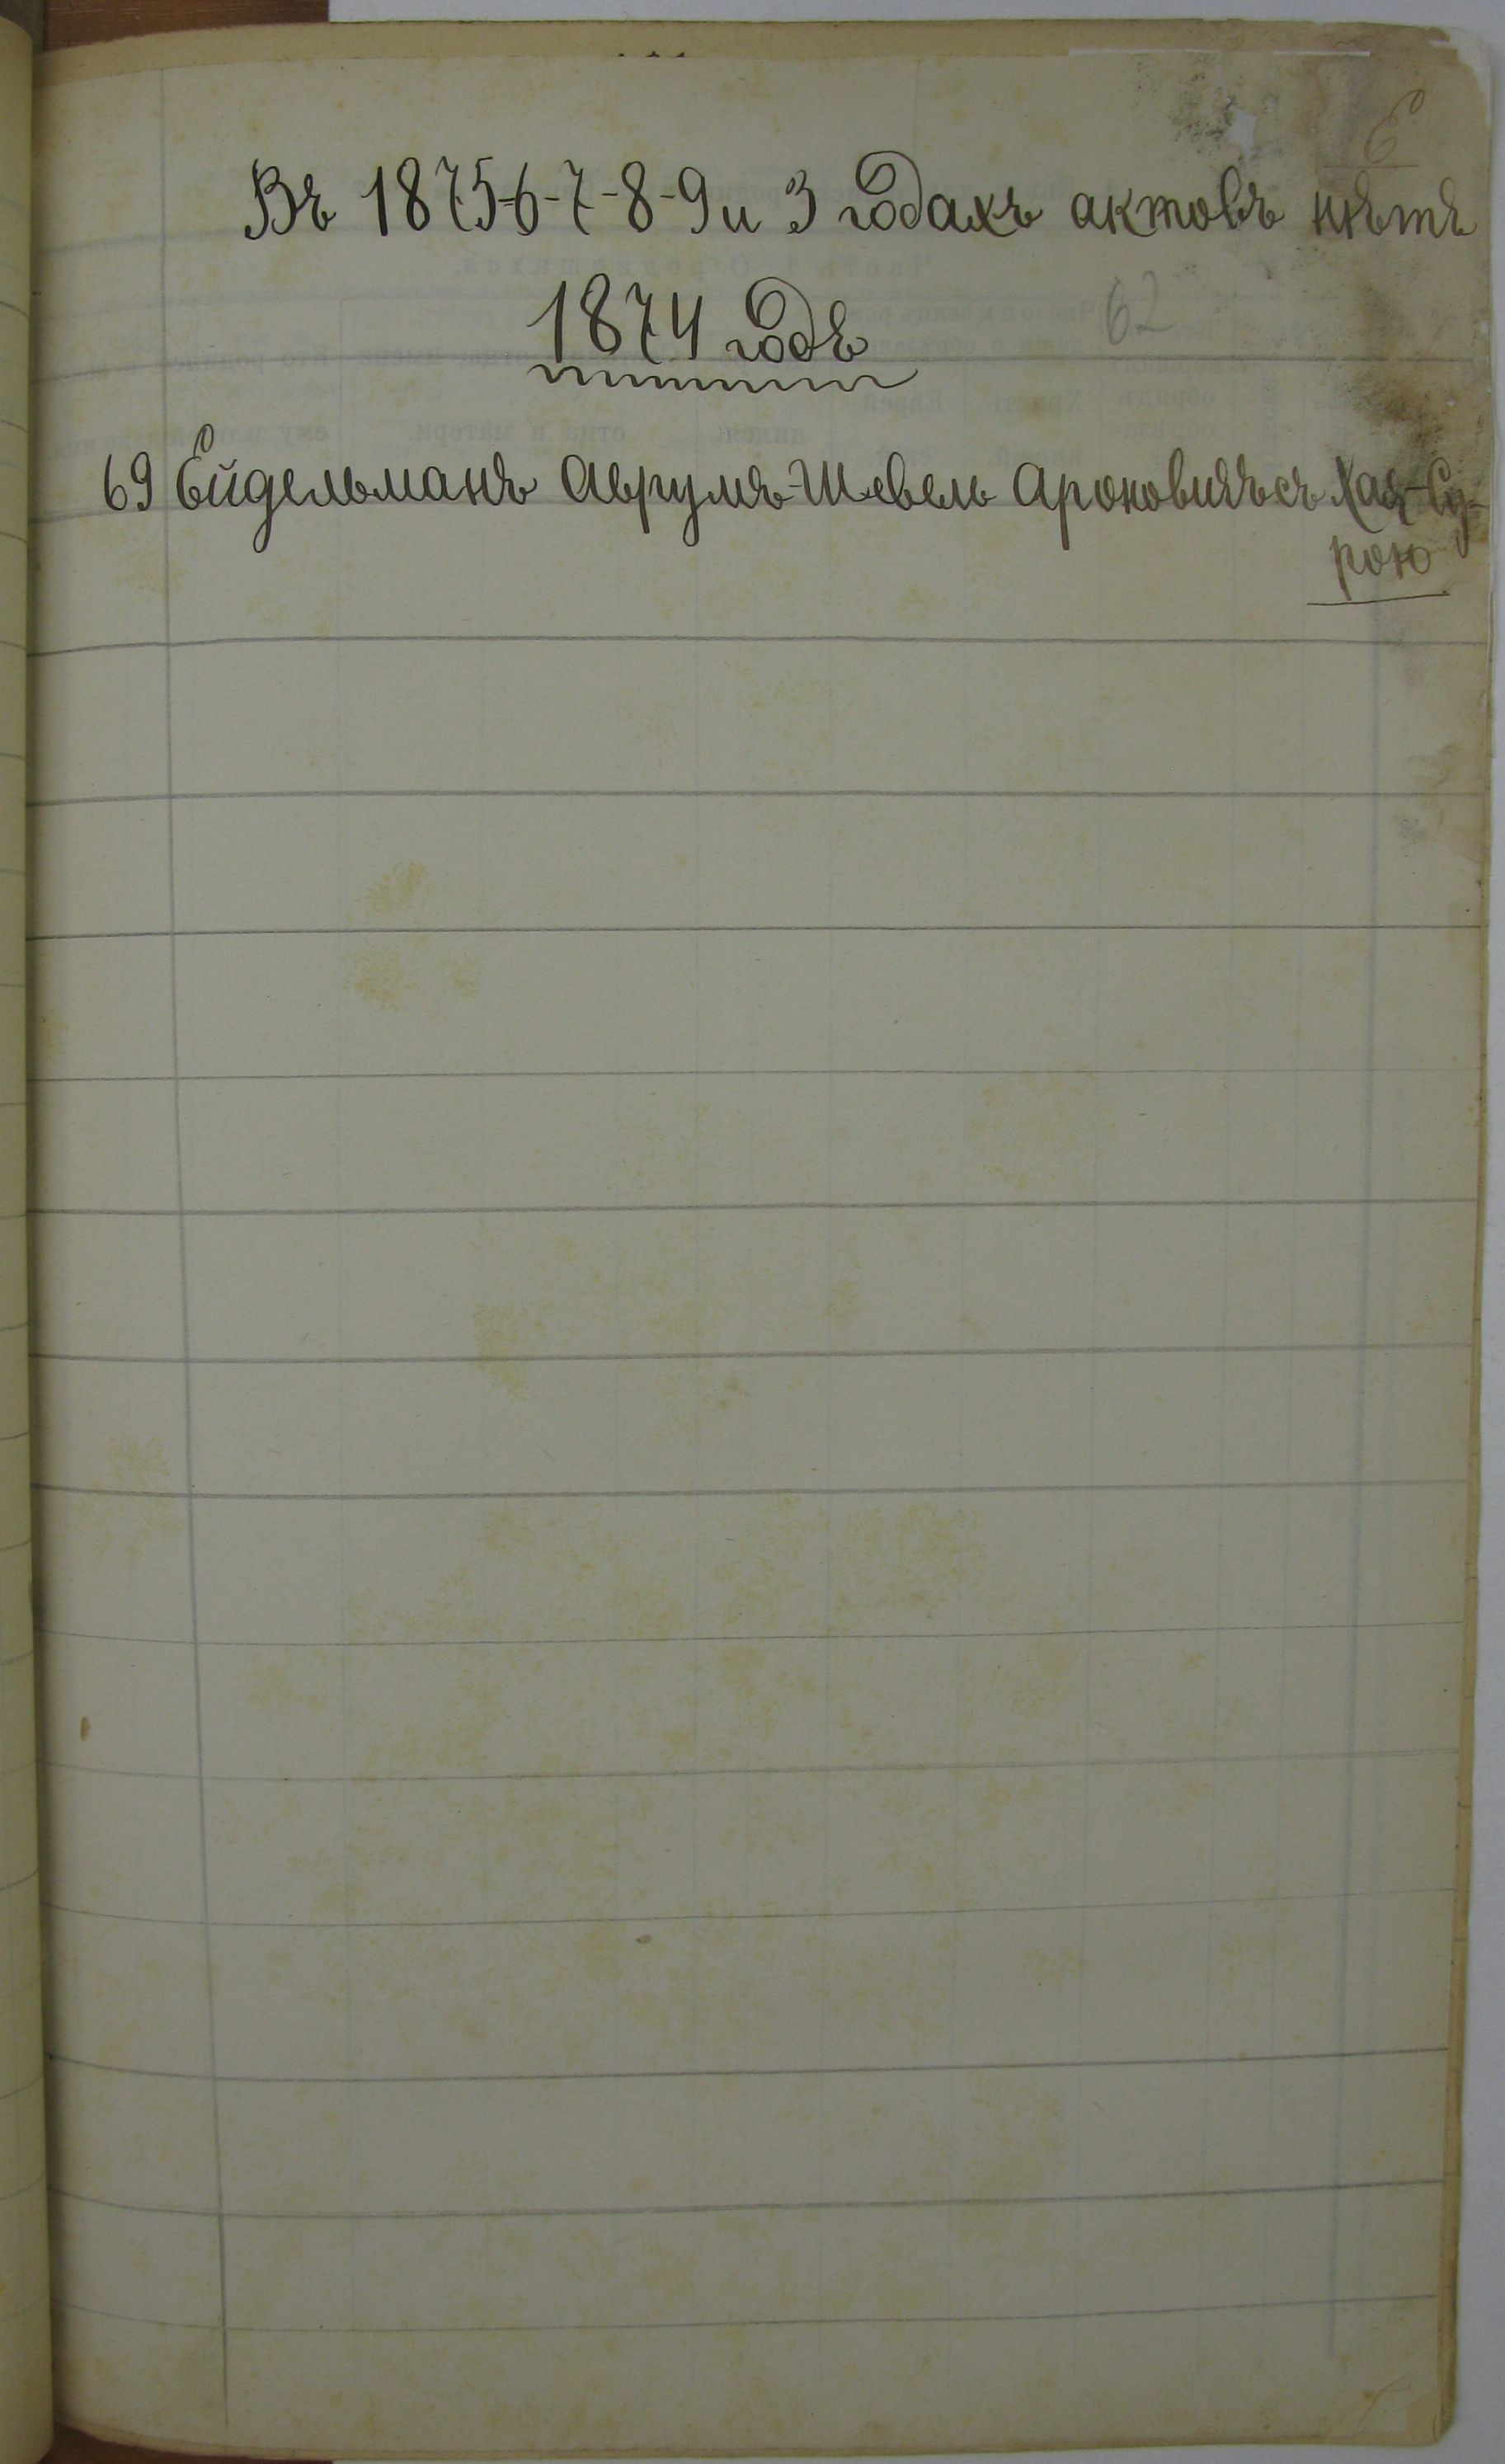 Е
Въ 1875-6-7-8-9 и 3 годахъ актовъ нѣтъ
1874 годъ
62
69 Ейдельманъ Аврумъ-Шевель Ароновичъ съ Хая-Су-
рою